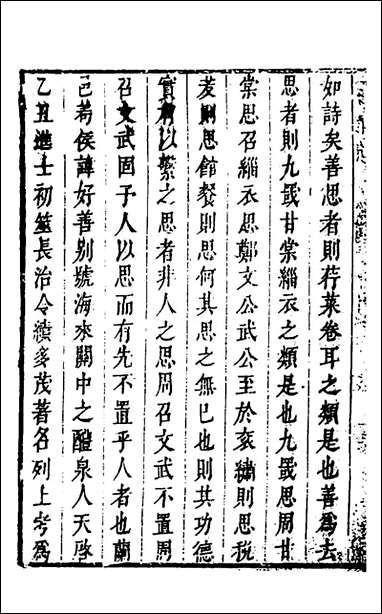 如詩矣善思者則荇菜卷耳之類是也善為去
思者則九罭甘棠緇衣之類是也九罭思周甘
棠思召緇衣思鄭文公武公至於衮繡則思稅
芰則思館餐則思何其思之無已也則其功德
實有以繫之思者非人之思周召文武不置周
召文武固予人以思而有先不置乎人者也蘭
已蒍侯諱好善别號海來關中之醴泉人天啓
乙丑進士初筮長治令績多茂著名列上考為